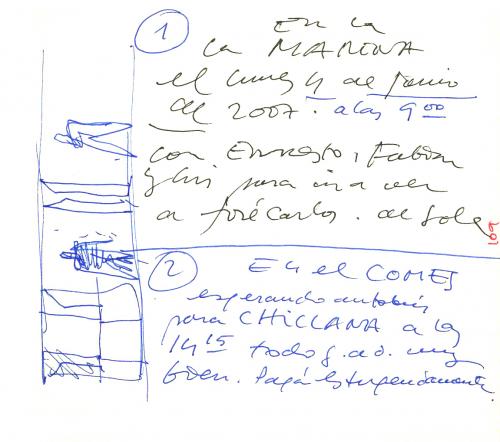 1
EN la
la MARINA
el lunes 4 de Junio
del 2007. a las 9 00
con Ernesto, Fabian
y para ir a ver
a José Carlos. de Sola
109
2
EN el COMES
esperando autobús
para CHICLANA a las
14 15 todo g. a d. muy
bien. Papá estupendamente.